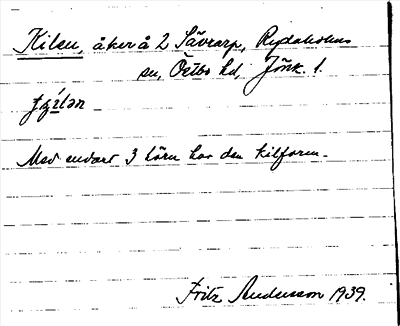 Kilen, åker å 2 Sävrarp, Rydaholms
sn, Östbo hd, Jönk. l.
Med endast 3 hörn har den kilform.
Fritz Andersson 1939.